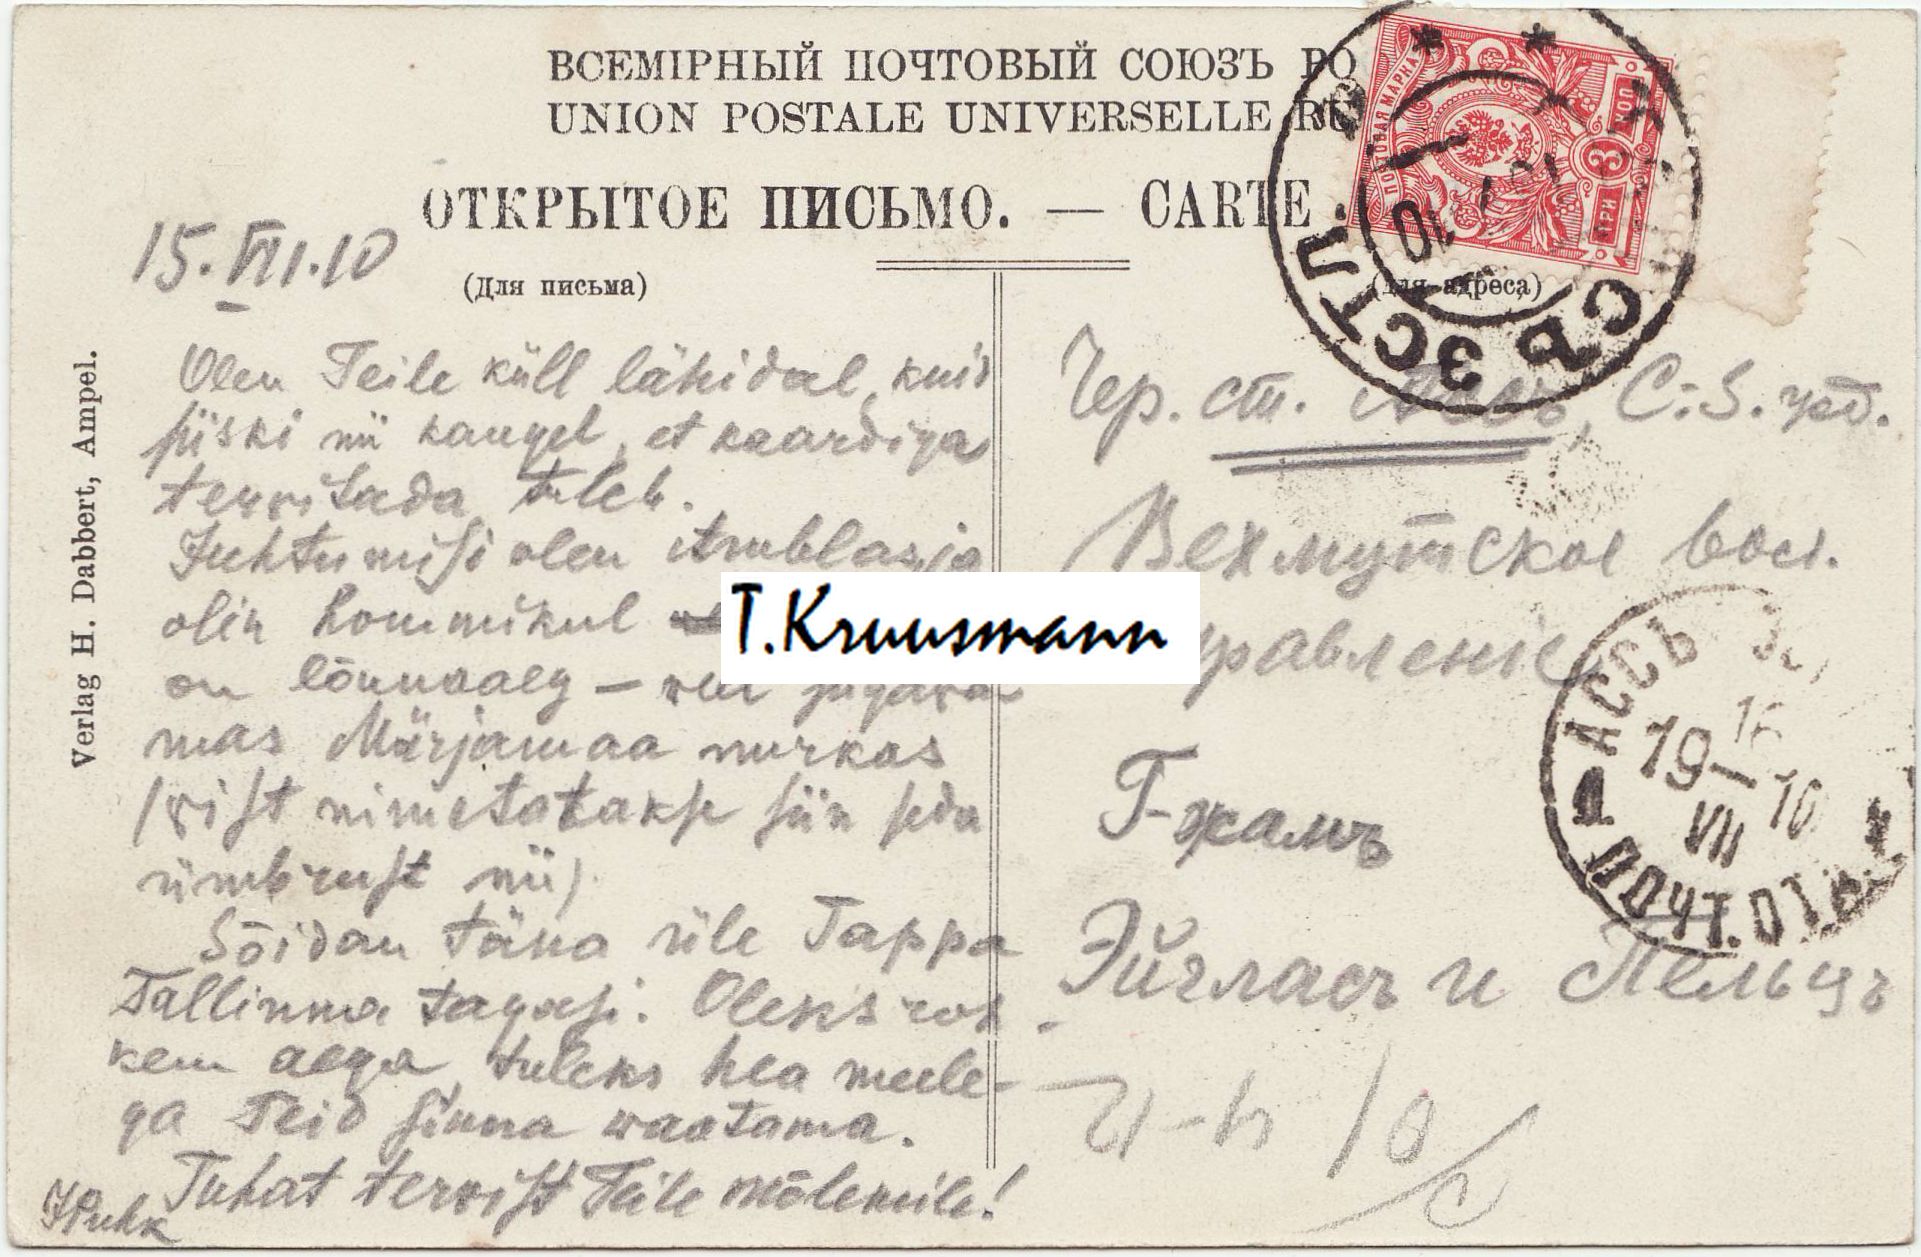 ВСЕМІРНЫЙ ПОЧТОВЫЙ СОЮЗЪ РО
UNION POSTALE UNIVERSELLE RU
ОТКРЫТОЕ ПИСЬМО. — CARTE
(Для письма)
(Для адреса)
15. VII. 10
Olen Teile küll lähidal, kuid
siiski nii kaugel, et kaardiga
terwitada tuleb.
Juhtumisi olen Amblas, ja
olin hommikul
on lõunaaeg —
mas Märjamaa nurkas
(wist nimetatakse siin seda
ümbrust nii)
Sõidan täna üle Tappa
Tallinna tagasi. Oleks roh
kem aega, tuleks hea meele-
ga Teid sinna waatama.
Tuhat terwist Teile mõlemile!
Verlag H. Dabbert, Ampel.
T.Kruusmann
Чер. ст. Ассъ, С.
Вехмутское вол.
правленіе
Г-жамъ
Эйгласъ и Пельцъ
ПОЧТОВАЯ МАРКА
3
ТРИ
КОП.
ЭСТЛ.
10
АССЪ ЭС
16
19—10
VII
1
ПОЧТ. ОТД.